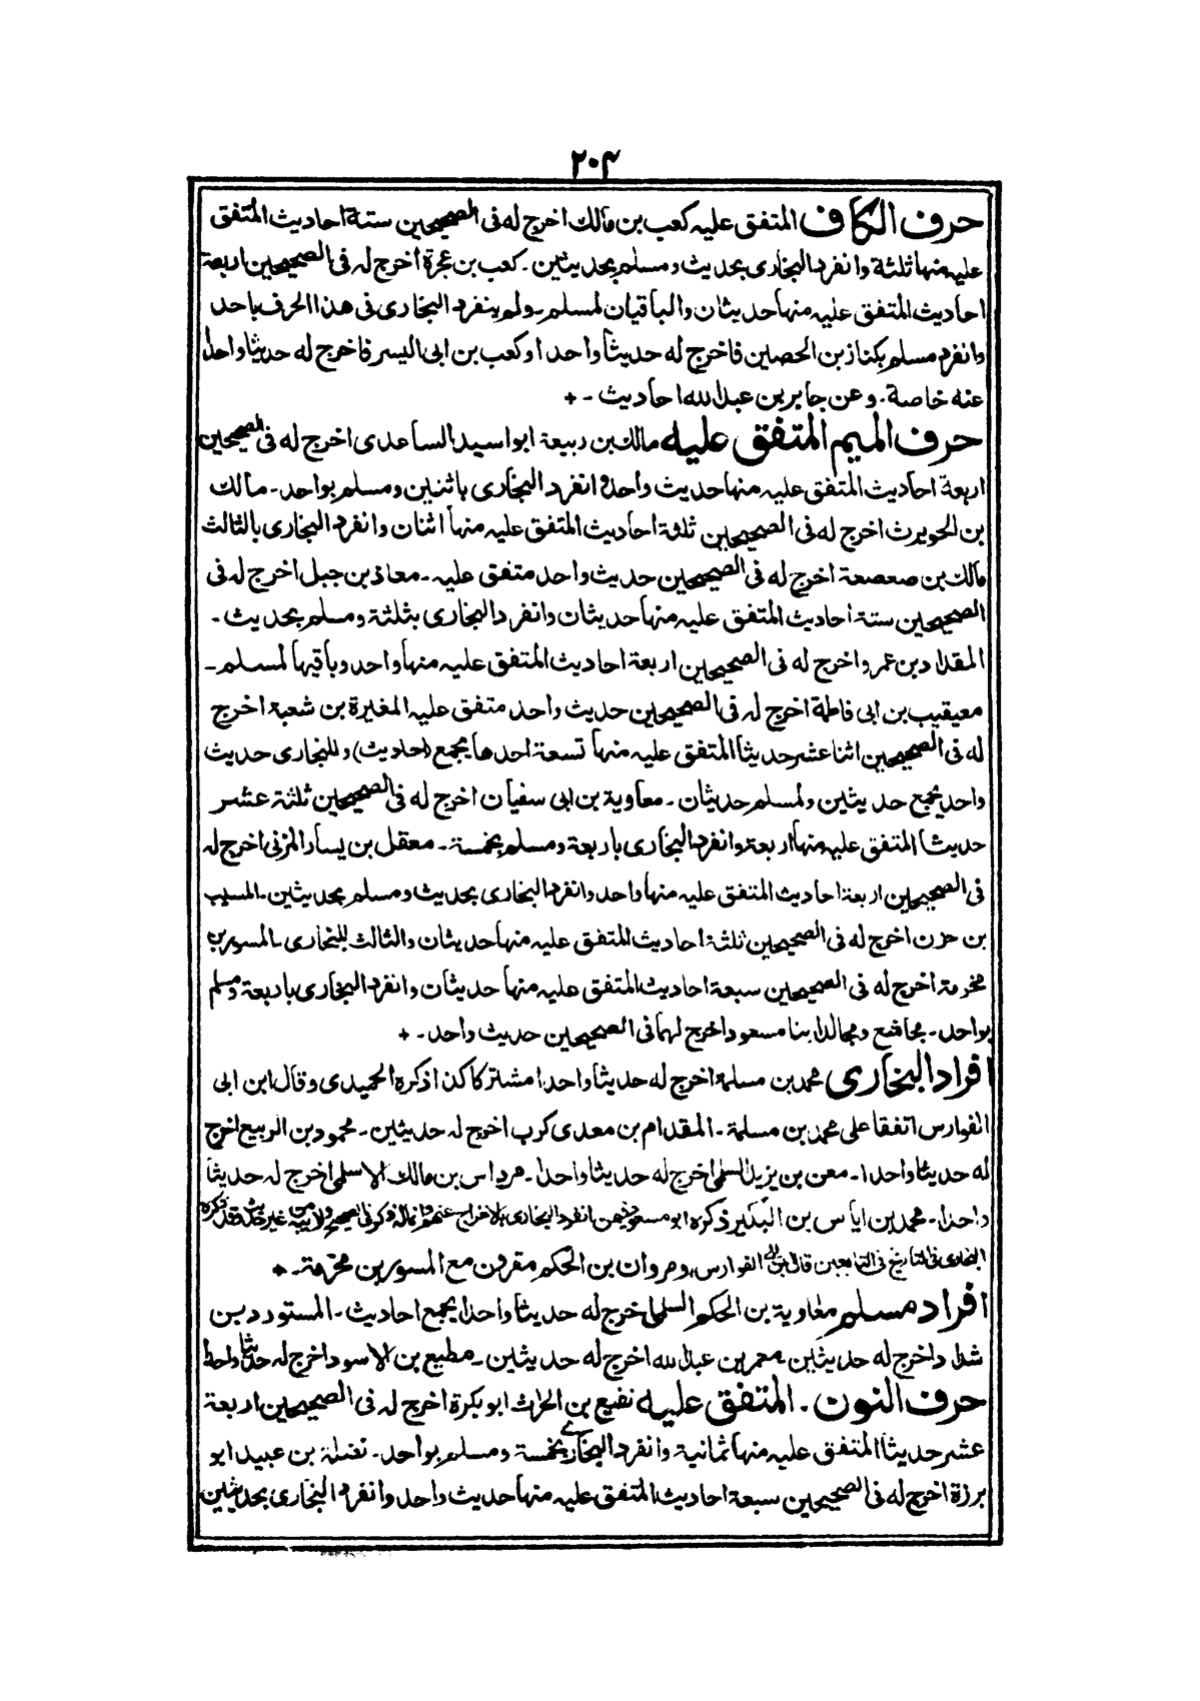 ٢٠٤
حرف الكاف المتفق عليه كعب بن مالك اخرج له فى الصحيحين ستة احاديث المتفق
عليه منها ثلثة وانفرد البخارى بحديث ومسلم بحديثين . كعب بن عجرة اخرج له فى الصحيحين اربعة
احاديث المتفق عليه منها حديثان والباقيان لمسلم - ولم ينفرد البخارى فى هذا الحرف باحد
وانفرد مسلم بكناز بن الحصين فاخرج له حديثا واحدا وكعب بن ابى اليسر فاخرج له حديثا واحدا
عنه خاصة . وعن جابر بن عبد الله احاديث - +
حرف الميم المتفق عليه مالك بن ربيعة ابو اسيد الساعدى اخرج له فى الصحيحين
اربعة احاديث المتفق عليه منها حديث واحد وانفرد البخارى باثنين ومسلم بواحد - مالك
بن الحويرث اخرج له فى الصحيحين ثلثة احاديث المتفق عليه منها اثنان وانفرد البخارى بالثالث
مالك بن صعصعة اخرج له فى الصحيحين حديث واحد متفق عليه - معاذ بن جبل اخرج له فى
الصحيحين ستة احاديث المتفق عليه منها حديثان وانفرد البخارى بثلثة ومسلم بحديث -
المقداد بن عمرو اخرج له فى الصحيحين اربعة احاديث المتفق عليه منها واحد وباقيها لمسلم -
معيقيب بن ابى فاطمة اخرج له فى الصحيحين حديث واحد متفق عليه المغيرة بن شعبة اخرج
له فى الصحيحين اثنا عشر حديثا المتفق عليه منها تسعة احدها يجمع (احاديث) وللبخارى حديث
واحد يجمع حديثين ولمسلم حديثان - معاوية بن ابى سفيان اخرج له فى الصحيحين ثلثة عشر
حديثا المتفق عليه منها اربعة وانفرد البخارى باربعة ومسلم بخمسة - معقل بن يسار المزنى اخرج له
فى الصحيحين اربعة احاديث المتفق عليه منها واحد وانفرد البخارى بحديث ومسلم بحديثين - المسيب
بن حزن اخرج له فى الصحيحين ثلثة احاديث المتفق عليه منها حديثان والثالث للبخارى - المسور بن
مخرمة اخرج له فى الصحيحين سبعة احاديث المتفق عليه منها حديثان وانفرد البخارى باربعة ومسلم
بواحد - مجاشع ومجالد ابنا مسعود اخرج لهما فى الصحيحين حديث واحد - +
افراد البخارى محمد بن مسلمة اخرج له حديثا واحدا مشتركا كذا ذكره الحميدى وقال ابن ابى
الفوارس اتفقا على محمد بن مسلمة - المقدام بن معدى كرب اخرج له حديثين - محمود بن الربيع اخرج
له حديثا واحدا - معن بن يزيد السلمى اخرج له حديثا واحدا - مرداس بن مالك الاسلمى اخرج له حديثا
واحدا - محمد بن اياس بن البكير ذكره ابو مسعود فيمن انفرد البخارى بالاخراج عنهم وانما له ذكر فى الصحيح من غير حديث وقد ذكره
البخارى فى التاريخ فى التابعين قال ابن ابى الفوارس ومروان بن الحكم مقرون مع المسور بن مخرمة - +
افراد مسلم معاوية بن الحكم السلمى اخرج له حديثا واحدا يجمع احاديث - المستورد بن
شداد اخرج له حديثين معمر بن عبد الله اخرج له حديثين - مطيع بن الاسود اخرج له حديثا واحدا
حرف النون . المتفق عليه نفيع بن الحارث ابو بكرة اخرج له فى الصحيحين اربعة
عشر حديثا المتفق عليه منها ثمانية وانفرد البخارى بخمسة ومسلم بواحد - نضلة بن عبيد ابو
برزة اخرج له فى الصحيحين سبعة احاديث المتفق عليه منها حديث واحد وانفرد البخارى بحديثين